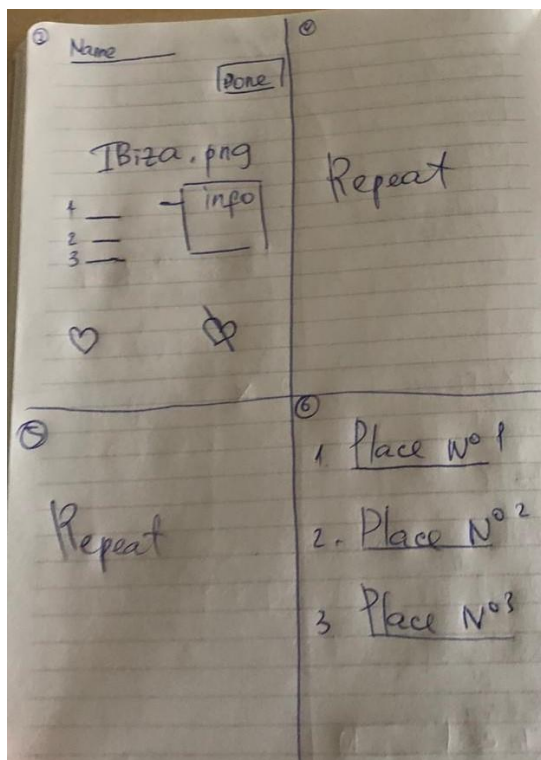 ③ Name
Done
IBiza.png
1
2
3
info
④
Repeat
⑤
Repeat
⑥
1. Place Nº 1
2. Place Nº 2
3 Place Nº 3